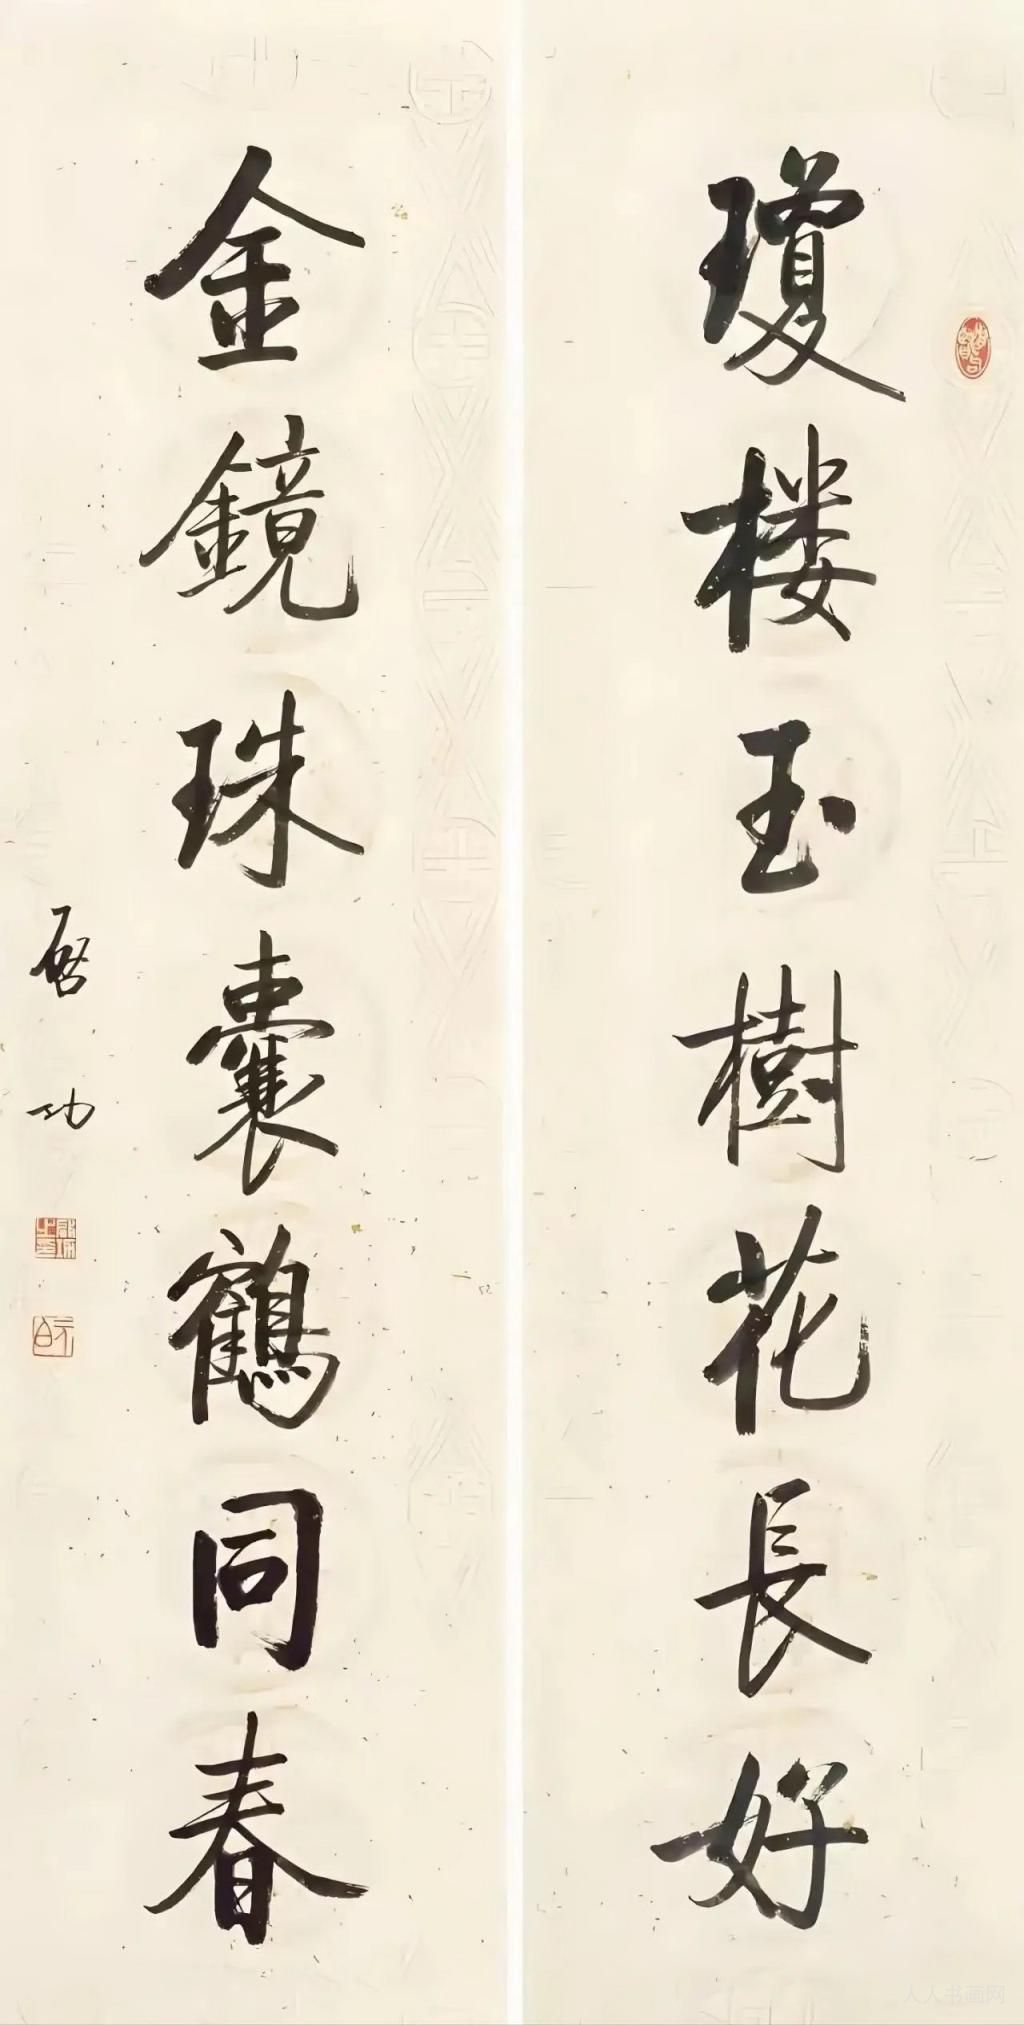 瓊楼玉樹花長好
金鏡珠囊鶴同春
启功
人人书画网